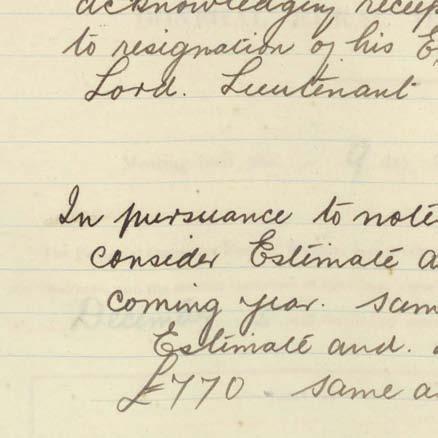 acknowledging recep
to resignation of his E
Lord. Lieutenant
In pursuance to note
consider Estimate a
coming year. sam
Estimate and.
£770. same a